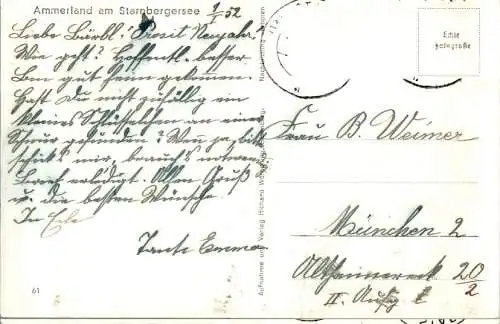 Ammerland am Starnbergersee
1/I 52
Liebe Bärbl! Prosit Neujahr!
Wie geht's? Hoffentl. besser.
Bin gut heim gekommen.
Hast Du nicht zufällig ein
kleines Schlüsselchen an einer
Schnur gefunden? Wenn ja, bitte
schick's mir, brauch's notwend.
Brief erledigt. Allen Gruß
u. die besten Wünsche.
In Eile
Tante Emma
61
Aufnahme und Verlag Richard
Echte
Fotografie
Frau B. Weimer
München 2
20/2
II. Aufg.